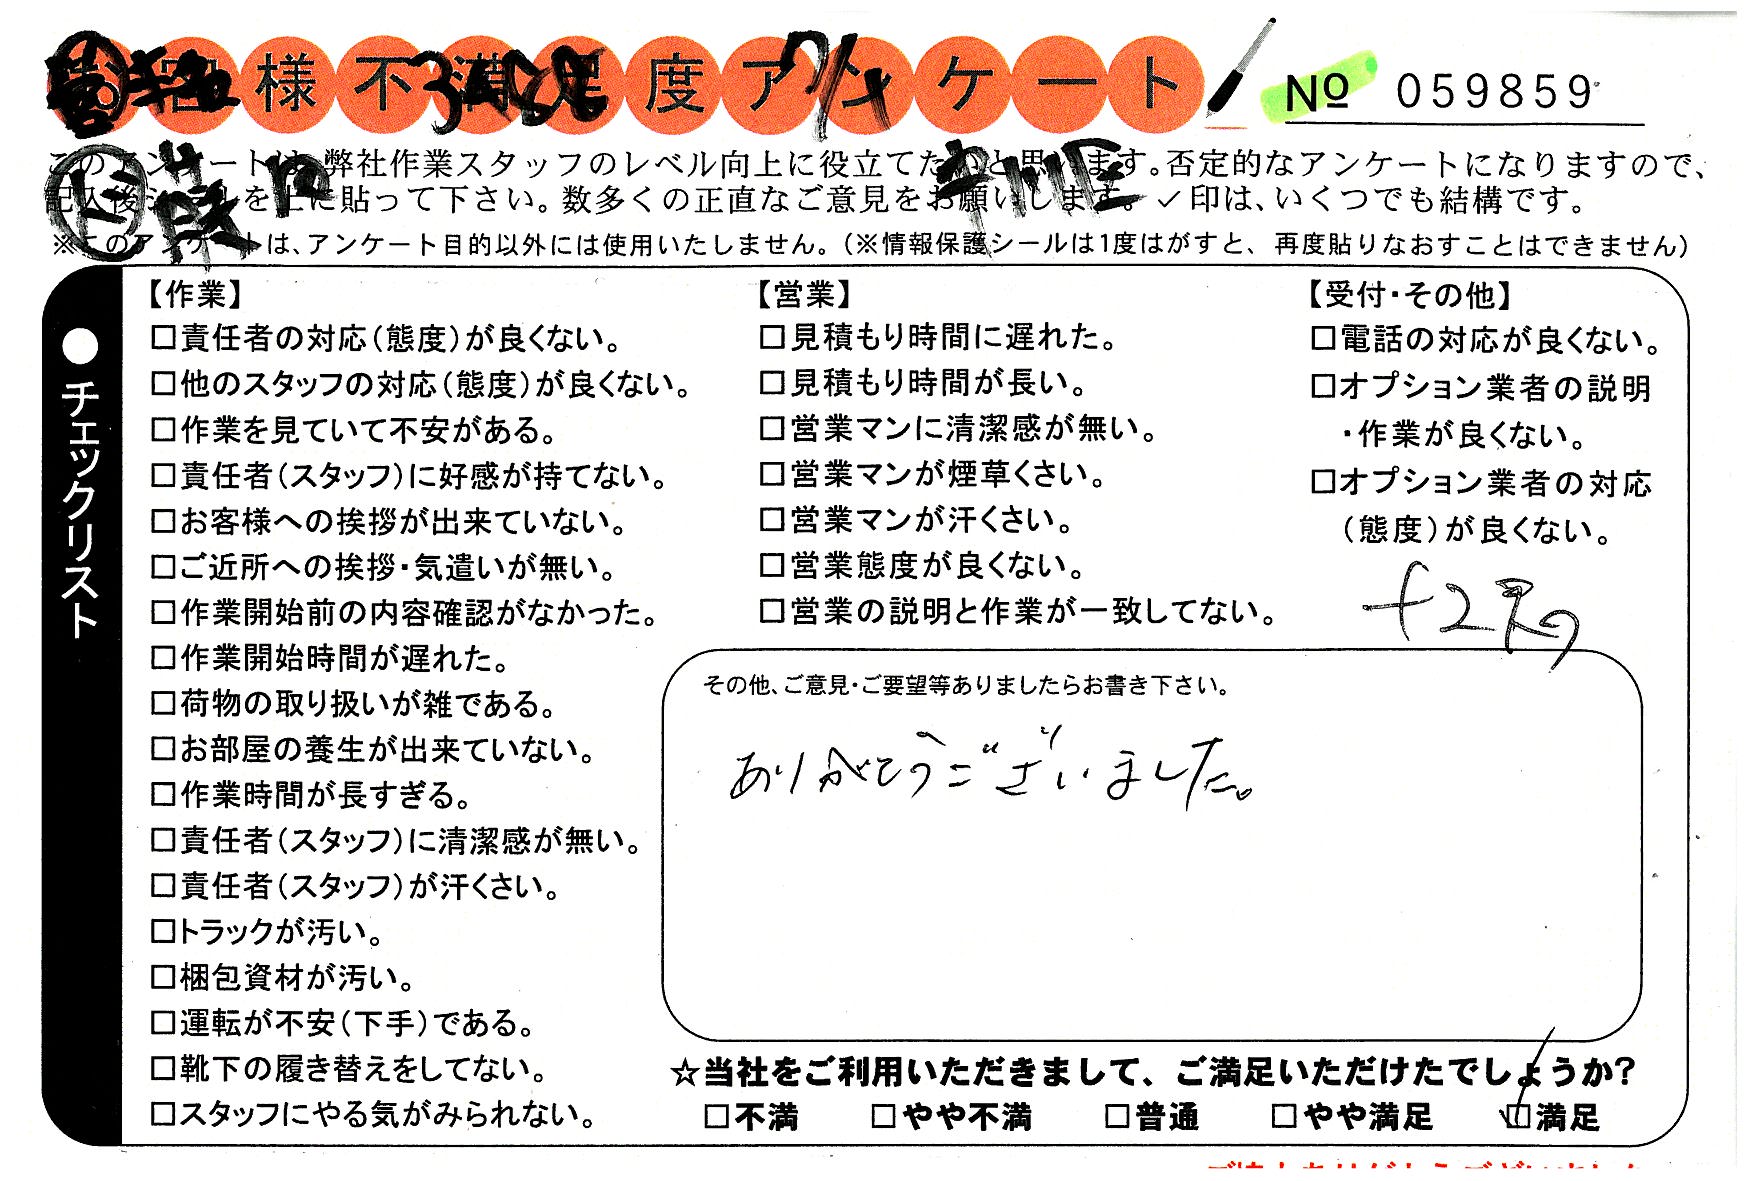 お客様不満足度アンケート
No 059859
このアンケートは、弊社作業スタッフのレベル向上に役立てたいと思います。否定的なアンケートになりますので、
記入後シールを上に貼って下さい。数多くの正直なご意見をお願いします。✓印は、いくつでも結構です。
※このアンケートは、アンケート目的以外には使用いたしません。(※情報保護シールは1度はがすと、再度貼りなおすことはできません)
●チェックリスト
【作業】
□責任者の対応(態度)が良くない。
□他のスタッフの対応(態度)が良くない。
□作業を見ていて不安がある。
□責任者(スタッフ)に好感が持てない。
□お客様への挨拶が出来ていない。
□ご近所への挨拶・気遣いが無い。
□作業開始前の内容確認がなかった。
□作業開始時間が遅れた。
□荷物の取り扱いが雑である。
□お部屋の養生が出来ていない。
□作業時間が長すぎる。
□責任者(スタッフ)に清潔感が無い。
□責任者(スタッフ)が汗くさい。
□トラックが汚い。
□梱包資材が汚い。
□運転が不安(下手)である。
□靴下の履き替えをしてない。
□スタッフにやる気がみられない。
【営業】
□見積もり時間に遅れた。
□見積もり時間が長い。
□営業マンに清潔感が無い。
□営業マンが煙草くさい。
□営業マンが汗くさい。
□営業態度が良くない。
□営業の説明と作業が一致してない。
【受付・その他】
□電話の対応が良くない。
□オプション業者の説明
・作業が良くない。
□オプション業者の対応
(態度)が良くない。
その他、ご意見・ご要望等ありましたらお書き下さい。
ありがとうございました。
☆当社をご利用いただきまして、ご満足いただけたでしょうか?
□不満 □やや不満 □普通 □やや満足 □満足